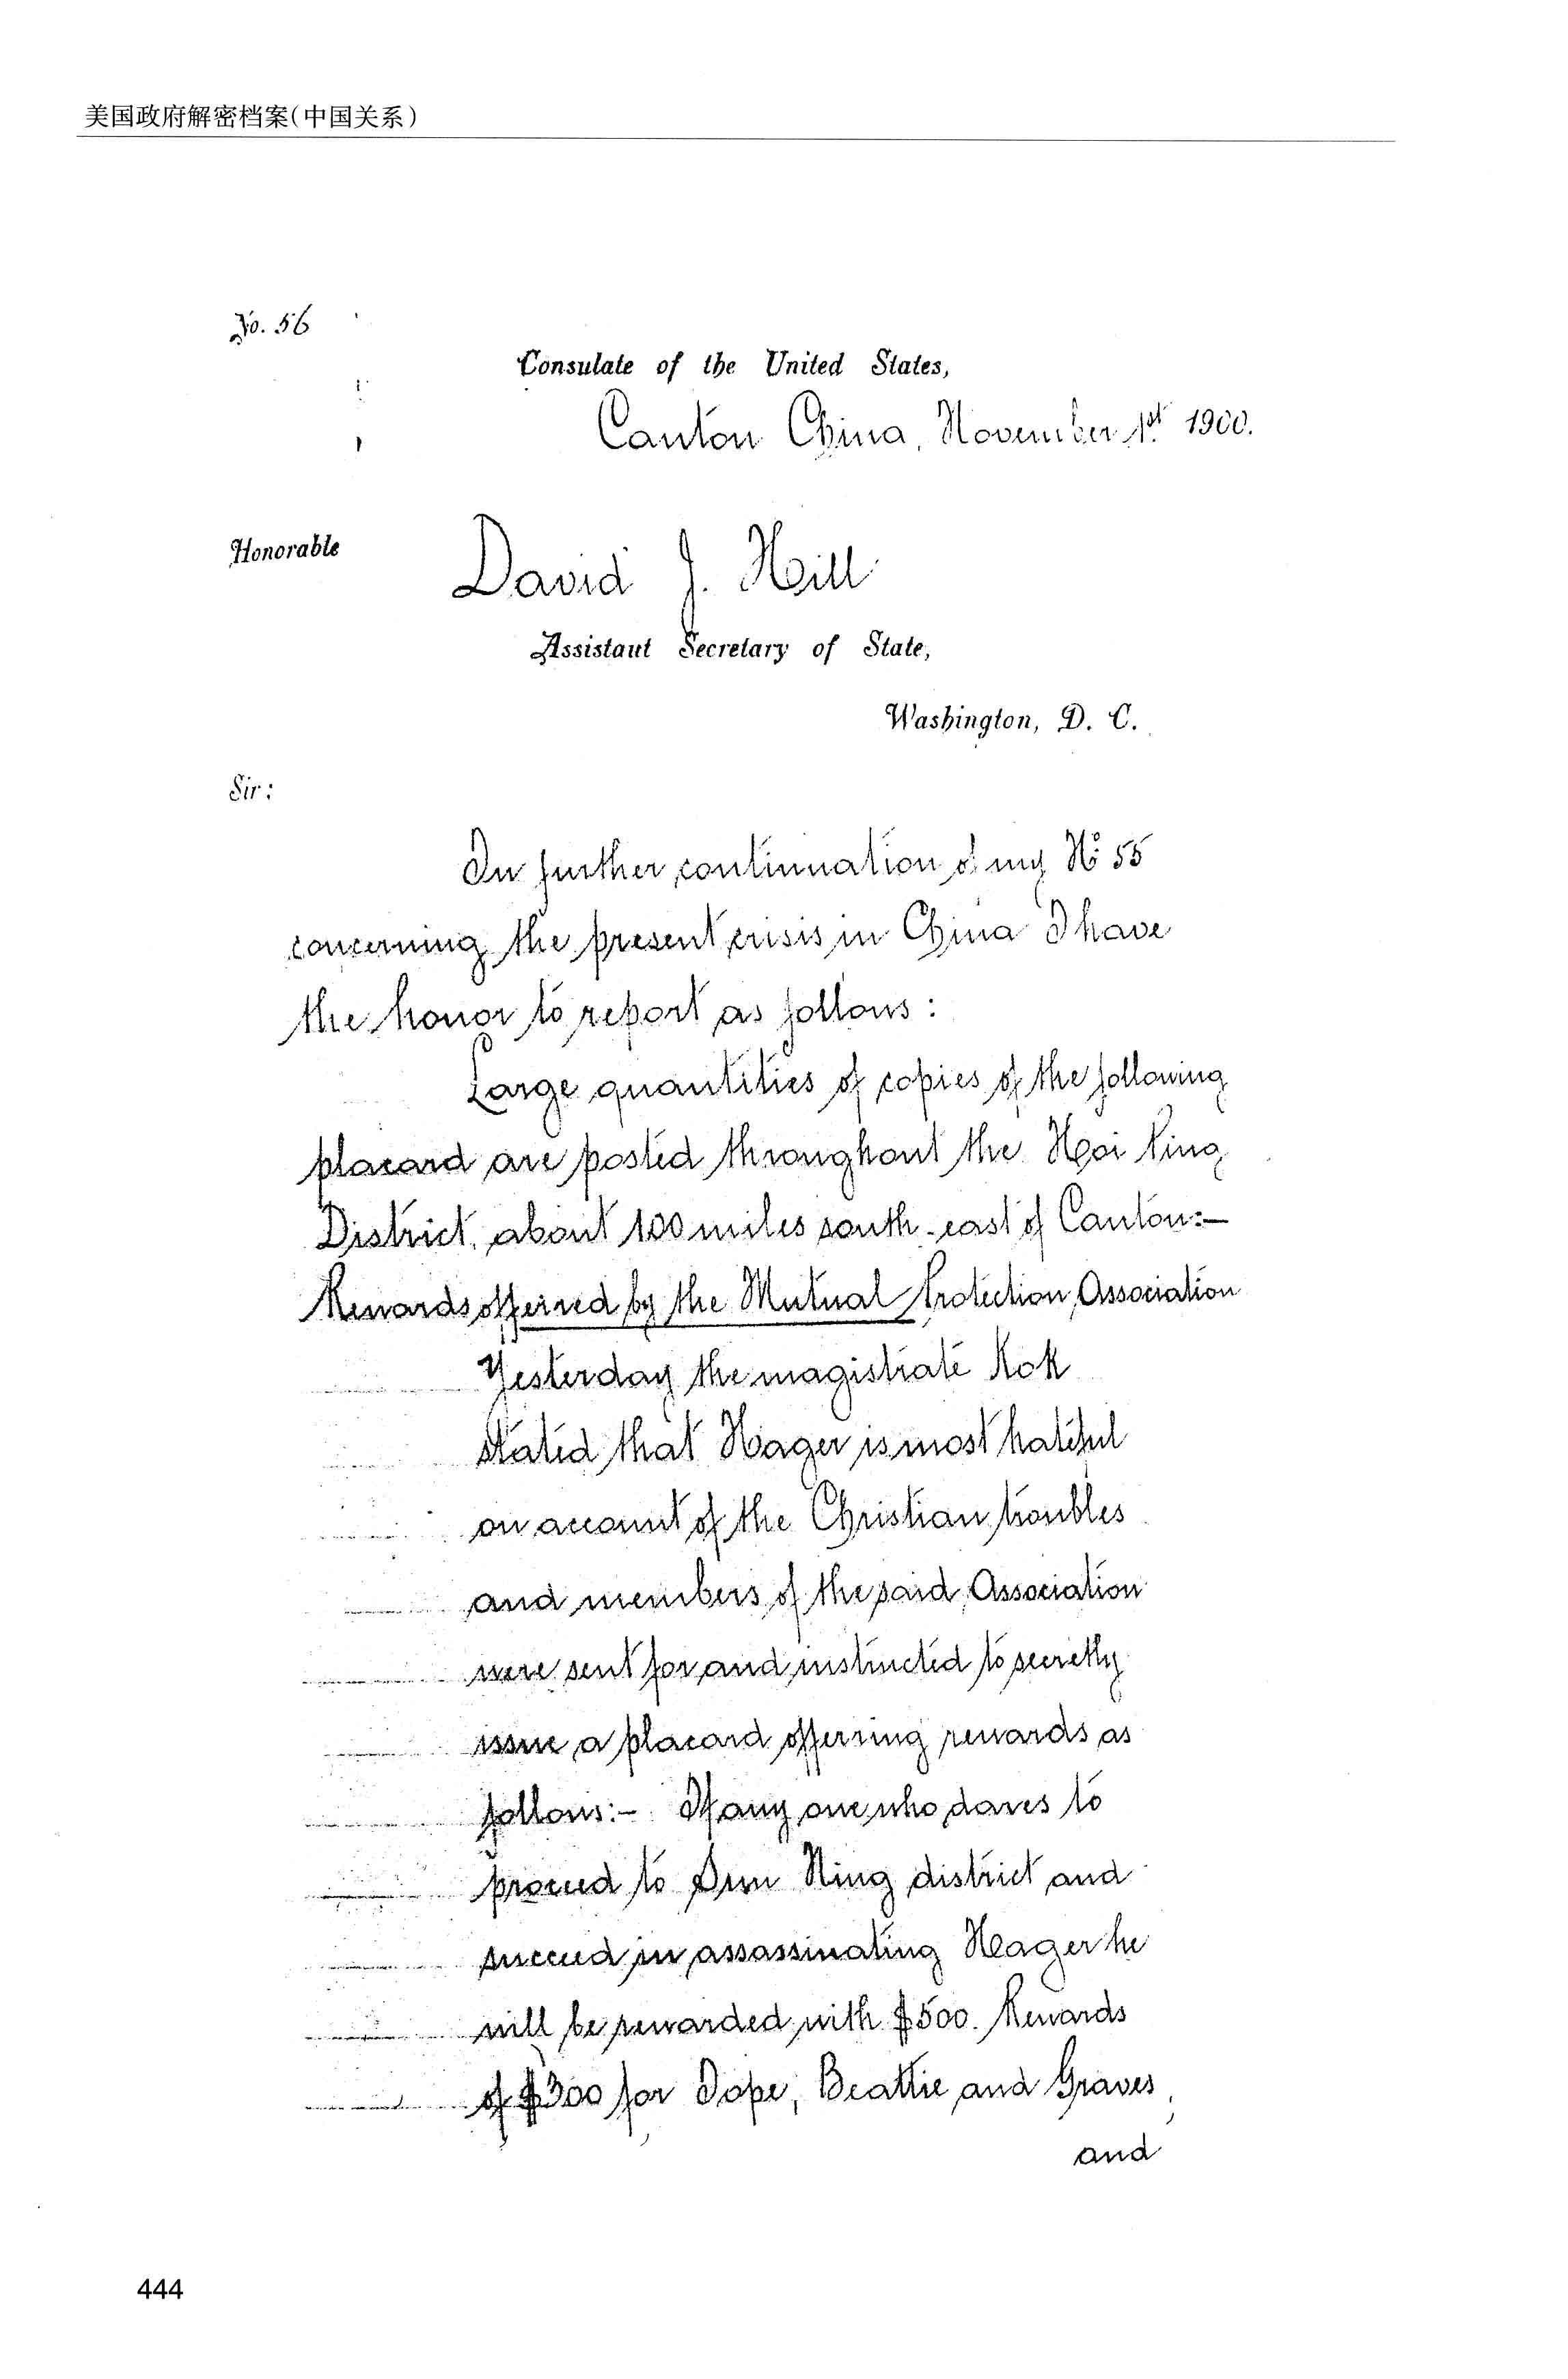 美国政府解密档案(中国关系)
No. 56
Consulate of the United States,
Canton China, November 1st 1900.
Honorable
David J. Hill
Assistant Secretary of State,
Washington, D. C.
Sir:
In further continuation of my No 55
concerning the present crisis in China I have
the honor to report as follows:
Large quantities of copies of the following
placard are posted throughout the Hoi Ping
District, about 100 miles south-east of Canton:-
Rewards offerred by the Mutual Protection Association
Yesterday the magistrate Kok
stated that Hager is most hateful
on account of the Christian troubles
and members of the said Association
were sent for and instructed to secretly
issue a placard offerring rewards as
follows:- If any one who dares to
proceed to Sun Ning district and
succeed in assassinating Hager he
will be rewarded with $500. Rewards
of $300 for Pope, Beattie and Graves,
and
444